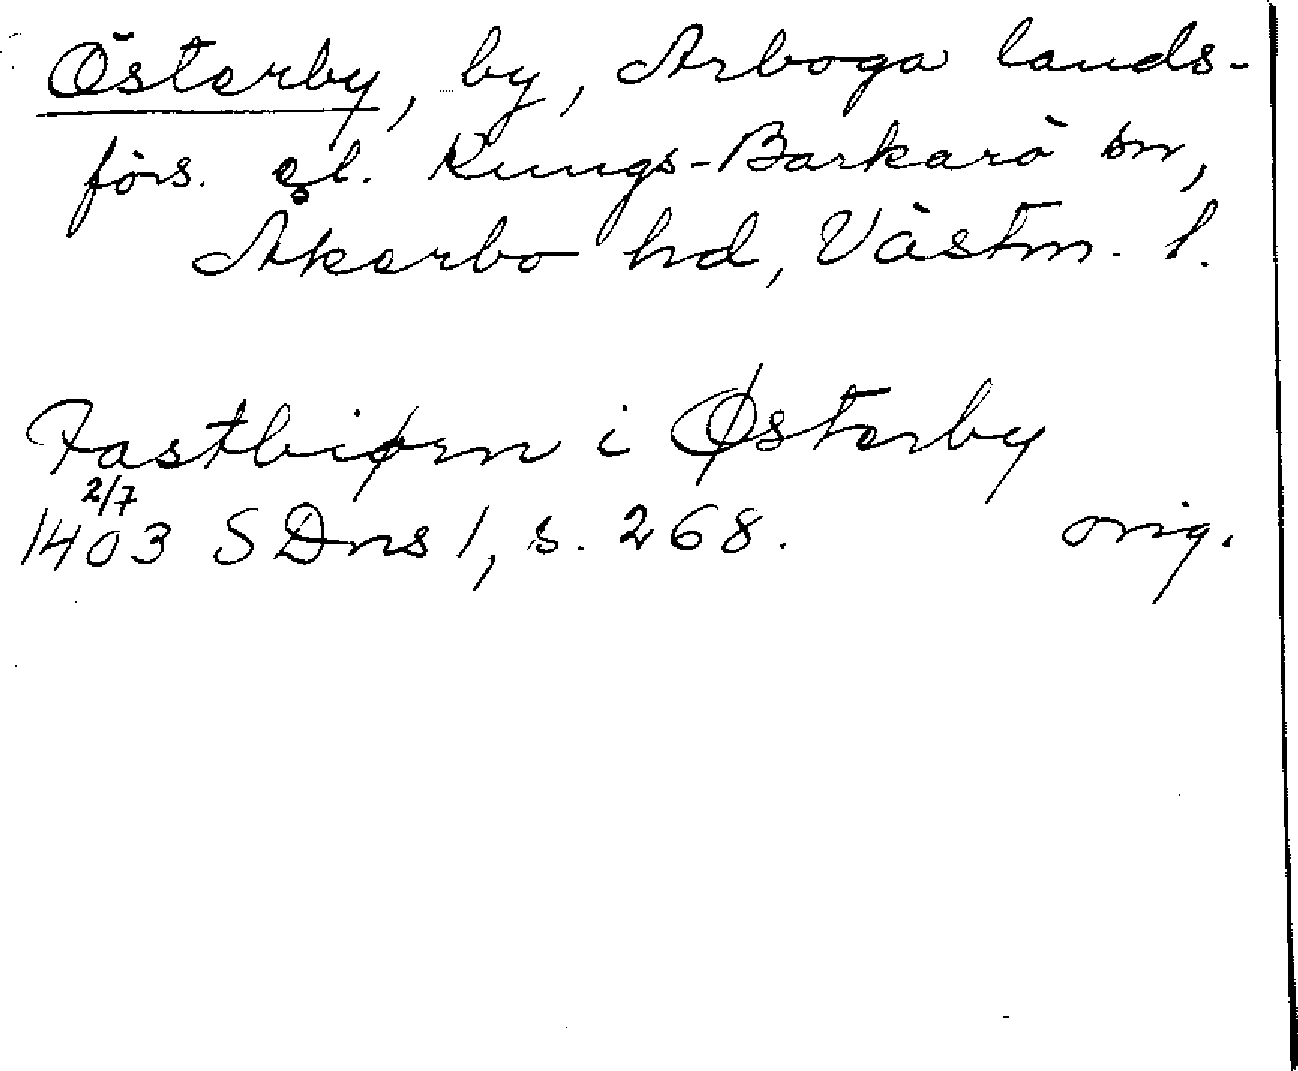 Österby, by, Arboga lands-
förs. gl. Kungs-Barkarö sn,
Åkerbo hd, Västm. l.
Fastbiørn i Østerby
2/7
1403 SDns 1, s. 268. orig.